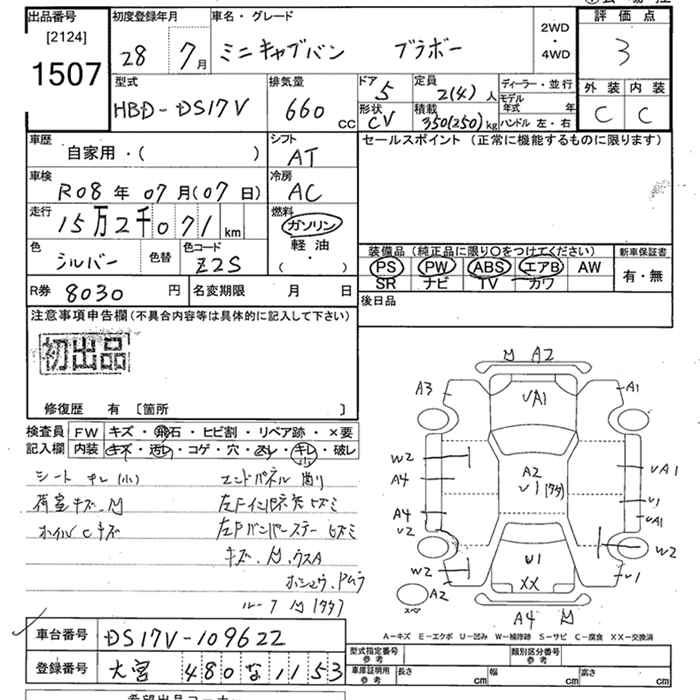 出品番号
[2124]
1507
初度登録年月
28年 7月
車名・グレード
ミニキャブバン ブラボー
2WD
・
4WD
評価点
3
外装 内装
C C
型式
HBD-DS17V
排気量
660 CC
ドア
5
形状
CV
定員
2(4)人
積載
350(250)kg
ディーラー・並行
モデル年式 年
ハンドル 左・右
車歴
自家用・( )
シフト
AT
セールスポイント (正常に機能するものに限ります)
車検
R08年 07月(07日)
冷房
AC
走行
15万2千071km
燃料
ガソリン
軽油
( )
色
シルバー
色替
色コード
Z2S
装備品 (純正品に限り○をつけてください)
PS・PW・ABS・エアB・AW
SR ナビ TV カワ
新車保証書
有・無
R券 8030円
名変期限 月 日
後日品
注意事項申告欄(不具合内容等は具体的に記入して下さい)
初出品
修復歴 有 [箇所 ]
検査員記入欄
FW キズ・飛石・ヒビ割・リペア跡・×要
内装 キズ・汚れ・コゲ・穴・スレ・キレ・破レ
小
シート キレ(小)
荷室キズ、凹
ホイルCキズ
エンドパネル 曲り
キズ、凹、ウスA
A2
A3
VA1
A1
W2
A4
A2
U1
VA1
U1
VA1
A4
U2
W2
U1
XX
W2
U1
A2
スペア
A4
A-キズ E-エクボ U-凹み W-補修跡 S-サビ C-腐食 XX-交換済
車台番号 DS17V-109622
登録番号 大宮 480 な 1153
型式指定番号
参考
類別区分番号
参考
車庫証明用
参考
長さ cm
幅 cm
高さ cm